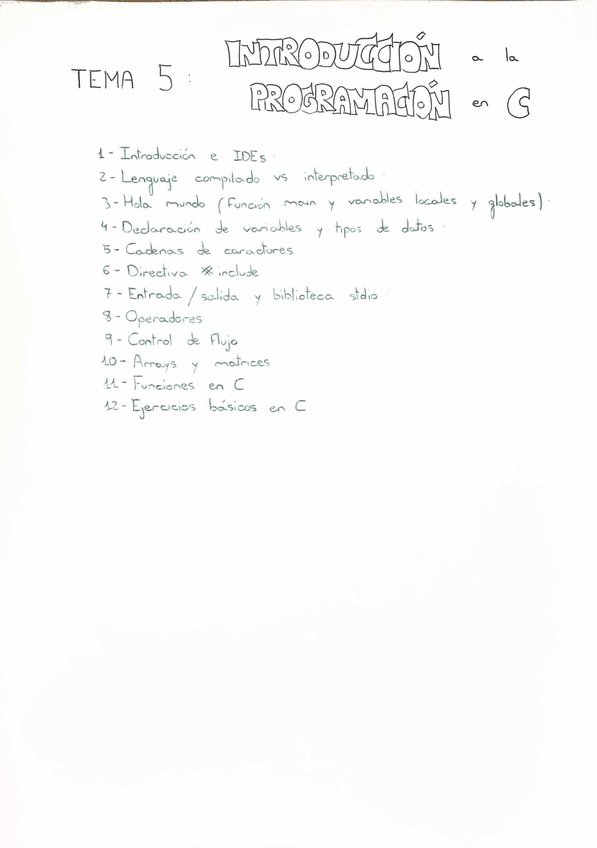 TEMA 5: INTRODUCCIÓN a la
PROGRAMACIÓN en C
1 - Introducción e IDEs
2 - Lenguaje compilado vs interpretado
3 - Hola mundo (Función main y variables locales y globales)
4 - Declaración de variables y tipos de datos
5 - Cadenas de caracteres
6 - Directiva # include
7 - Entrada / salida y biblioteca stdio
8 - Operadores
9 - Control de flujo
10 - Arrays y matrices
11 - Funciones en C
12 - Ejercicios básicos en C